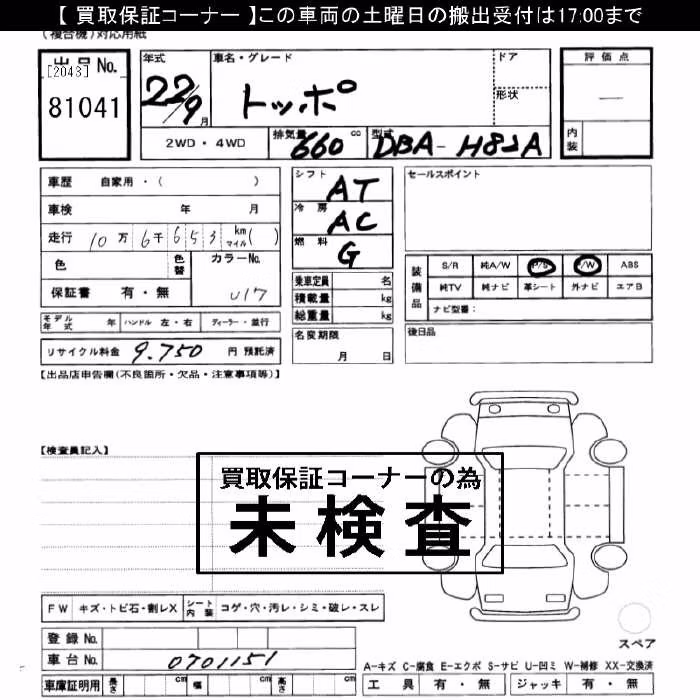 【 買取保証コーナー 】この車両の土曜日の搬出受付は17:00まで
(複合機)対応用紙
出品 No.
[2043]
81041
年式
22/9 月
車名・グレード
トッポ
ドア
形状
評価点
—
内装
2WD・4WD
排気量
660 cc
型式
DBA-H82A
車歴 自家用・( )
車検 年 月
走行 10万 6千 653 km マイル( )
色
色替
カラーNo.
U17
保証書 有・無
シフト
AT
冷房
AC
燃料
G
乗車定員 名
積載量 kg
総重量 kg
名変期限
月 日
セールスポイント
装備品
S/R 純A/W P/S P/W ABS
純TV 純ナビ 革シート 外ナビ エアB
ナビ型番:
後日品
モデル年式 年 ハンドル 左・右 ディーラー・並行
リサイクル料金 9.750 円 預託済
【出品店申告欄(不良箇所・欠品・注意事項等)】
【検査員記入】
買取保証コーナーの為
未検査
FW キズ・トビ石・割レX シート内装 コゲ・穴・汚レ・シミ・破レ・スレ
登録 No.
車台 No. 0701151
車庫証明用 長さ cm 幅 cm 高さ cm
スペア
A-キズ C-腐食 E-エクボ S-サビ U-凹ミ W-補修 XX-交換済
工具 有・無 ジャッキ 有・無